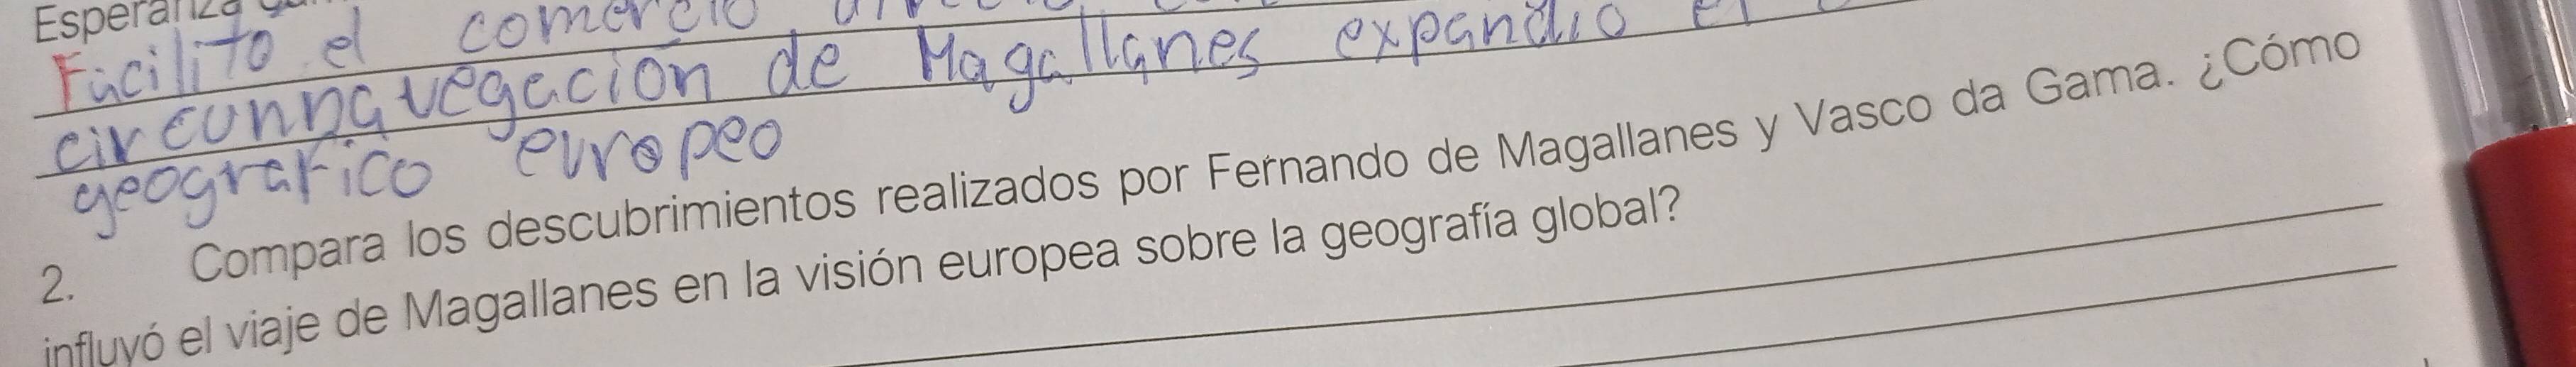 Esperanza
Facilito el comercio
circunnavegación de Magallanes expandio el
geografico europeo
2. Compara los descubrimientos realizados por Fernando de Magallanes y Vasco da Gama. ¿Cómo
influyó el viaje de Magallanes en la visión europea sobre la geografía global?